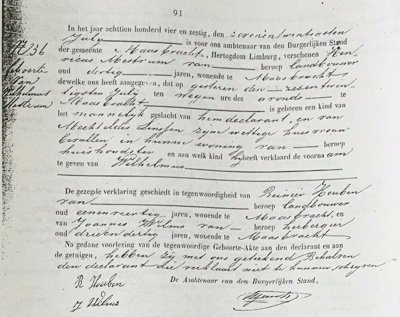 91
In het jaar achttien honderd vier en zestig, den zevenentwintigsten
July is voor ons ambtenaar van den Burgerlijken Stand
der gemeente Maasbracht, Hertogdom Limburg, verschenen Hen-
ricus Mestrum van beroep landbouwer
oud dertig jaren, wonende te Maasbracht
dewelke ons heeft aangegeven, dat op gisteren den zesentwin-
tigsten July ten negen ure des avonds te
Maasbracht is geboren een kind van
het mannelyk geslacht van hem declarant, en van
Mechtildis Linssen zyne wettige huisvrouw
bevallen in hunne woning van beroep
huishoudster en aan welk kind hy heeft verklaard de voornaam
te geven van Wilhelmus
N. 36
Geboorte
van
Wilhelmus
Mestrum
De gezegde verklaring geschiedt in tegenwoordigheid van Reinier Houben
van beroep landbouwer
oud eenenveertig jaren, wonende te Maasbracht, en
van Joannes Wilms van beroep herberger
oud drieendertig jaren, wonende te Maasbracht
Na gedane voorlezing van de tegenwoordige Geboorte-Akte aan den declarant en aan
de getuigen, hebben zij met ons geteekend Behalven
den declarant die verklaart niet te kunnen schryven
De Ambtenaar van den Burgerlijken Stand,
R Houben
J Wilms